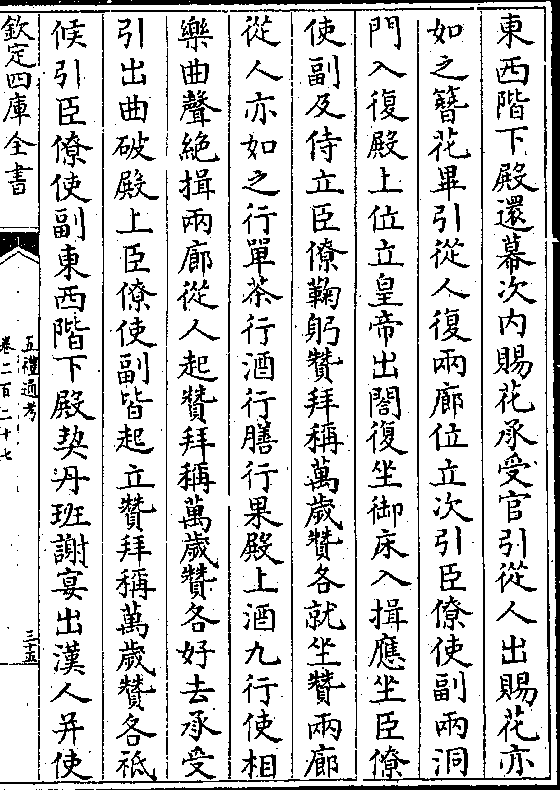 東西階下殿還幕次内賜花承受官引從人出賜花亦
如之簪花畢引從人復兩廊位立次引臣僚使副兩洞
門入復殿上位立皇帝出閤復坐御床入揖應坐臣僚
使副及侍立臣僚鞠躬贊拜稱萬歲贊各就坐贊兩廊
從人亦如之行單茶行酒行膳行果殿上酒九行使相
樂曲聲絶揖兩廊從人起贊拜稱萬歲贊各好去承受
引出曲破殿上臣僚使副皆起立贊拜稱萬歲贊各祗
候引臣僚使副東西階下殿契丹班謝宴出漢人并使
欽定四庫全書
五禮通考
卷二百二十七
三十五